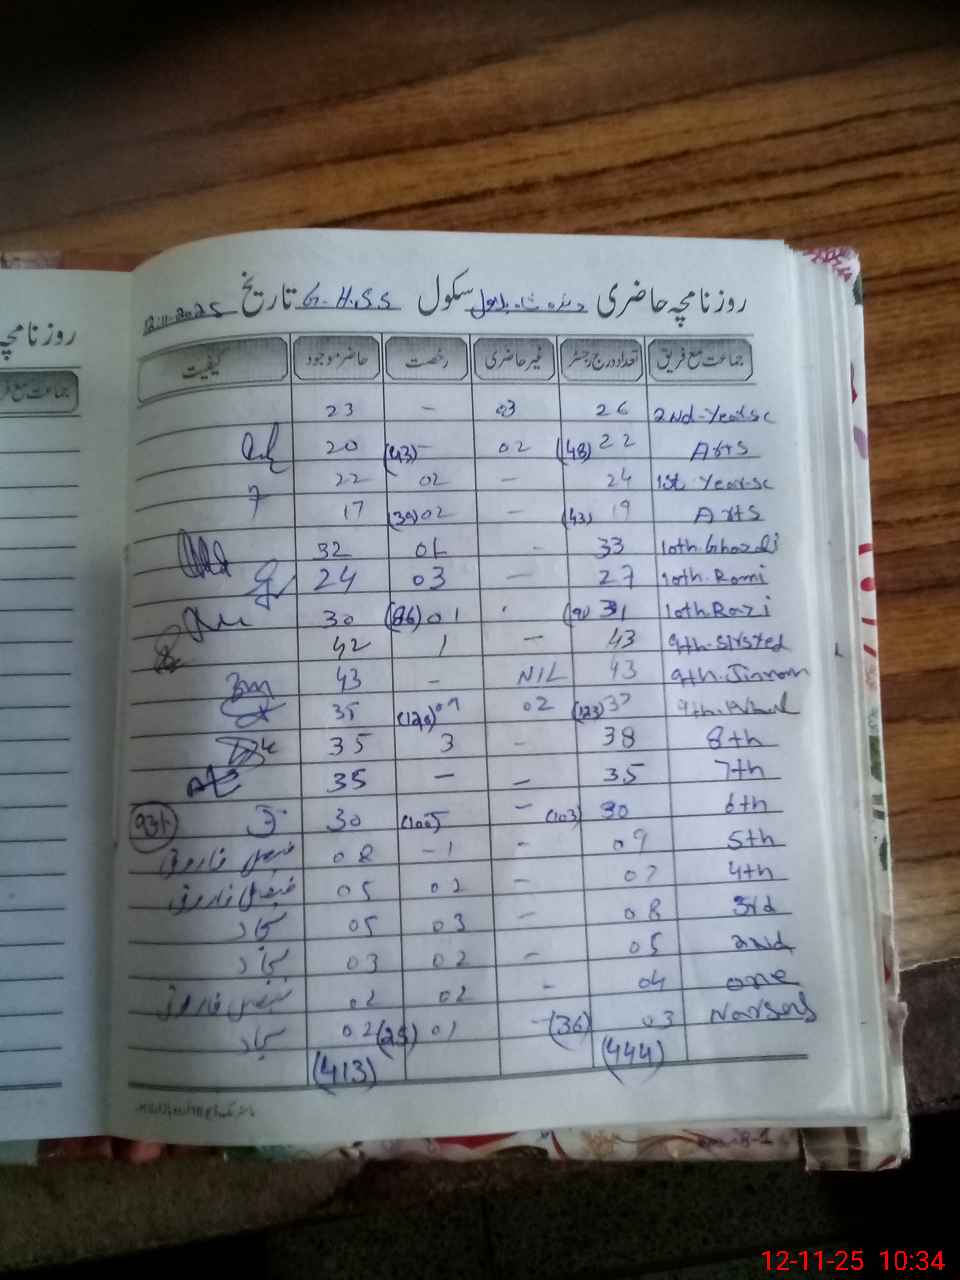 روزنامچہ حاضری سکول G.H.S.S تاریخ 12-11-2025
جماعت مع فریق تعداد درج رجسٹر غیر حاضری رخصت حاضر موجود کیفیت
2nd-Year.sc 26 03 - 23
Arts 22 (48) 02 - (43) 20
1st Year.sc 24 - 02 22
Arts 19 (43) - 02 (39) 17
10th. 33 - 01 32
10th.Romi 27 - 03 24
10th.Razi 31 01 (86) 30
9th. 43 - 1 42
9th. 43 NIL - 43
9th. 37 (123) 02 (120) 35
8th 38 - 3 35
7th 35 - - 35
6th 30 (103) - (100) 30
5th 09 - -1 08 فاروق
4th 07 - 02 05 فاروق
3rd 08 - 03 05
2nd 05 - 02 03
one 04 - 02 02 فاروق
03 (36) - 01 (25) 02
(444) (413)
روزنامچہ
12-11-25 10:34